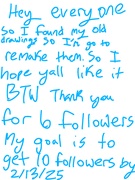 Hey everyone
So I found my old
drawings so I'm go to
remake them. So I
hope yall like it
BTW Thank you
for 6 followers
My goal is to
get 10 followers by
2/13/25